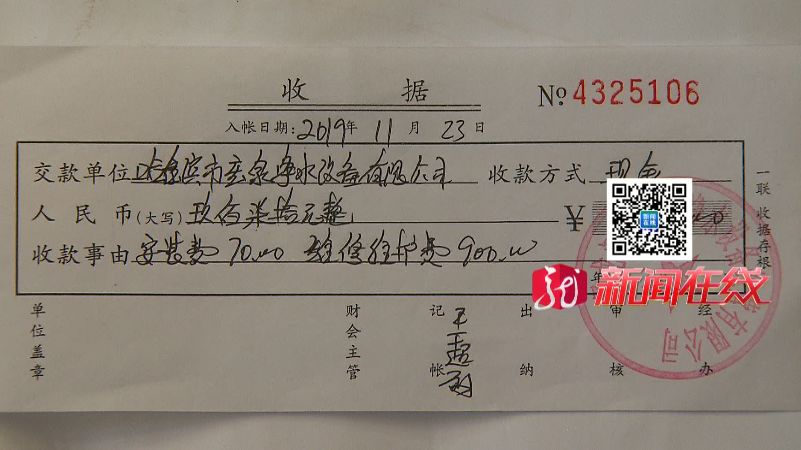 收 据
№ 4325106
入帐日期:2019年 11 月 23 日
交款单位 哈尔滨市 泉净水设备有限公司 收款方式 现金
人民币(大写) 玖佰柒拾元整 ¥
收款事由 安装费 70.00 维修维护费 900.00
新闻在线
新闻在线
单位盖章 财会主管 记帐 王 出纳 审核 经办
一联 收据存根
有限公司